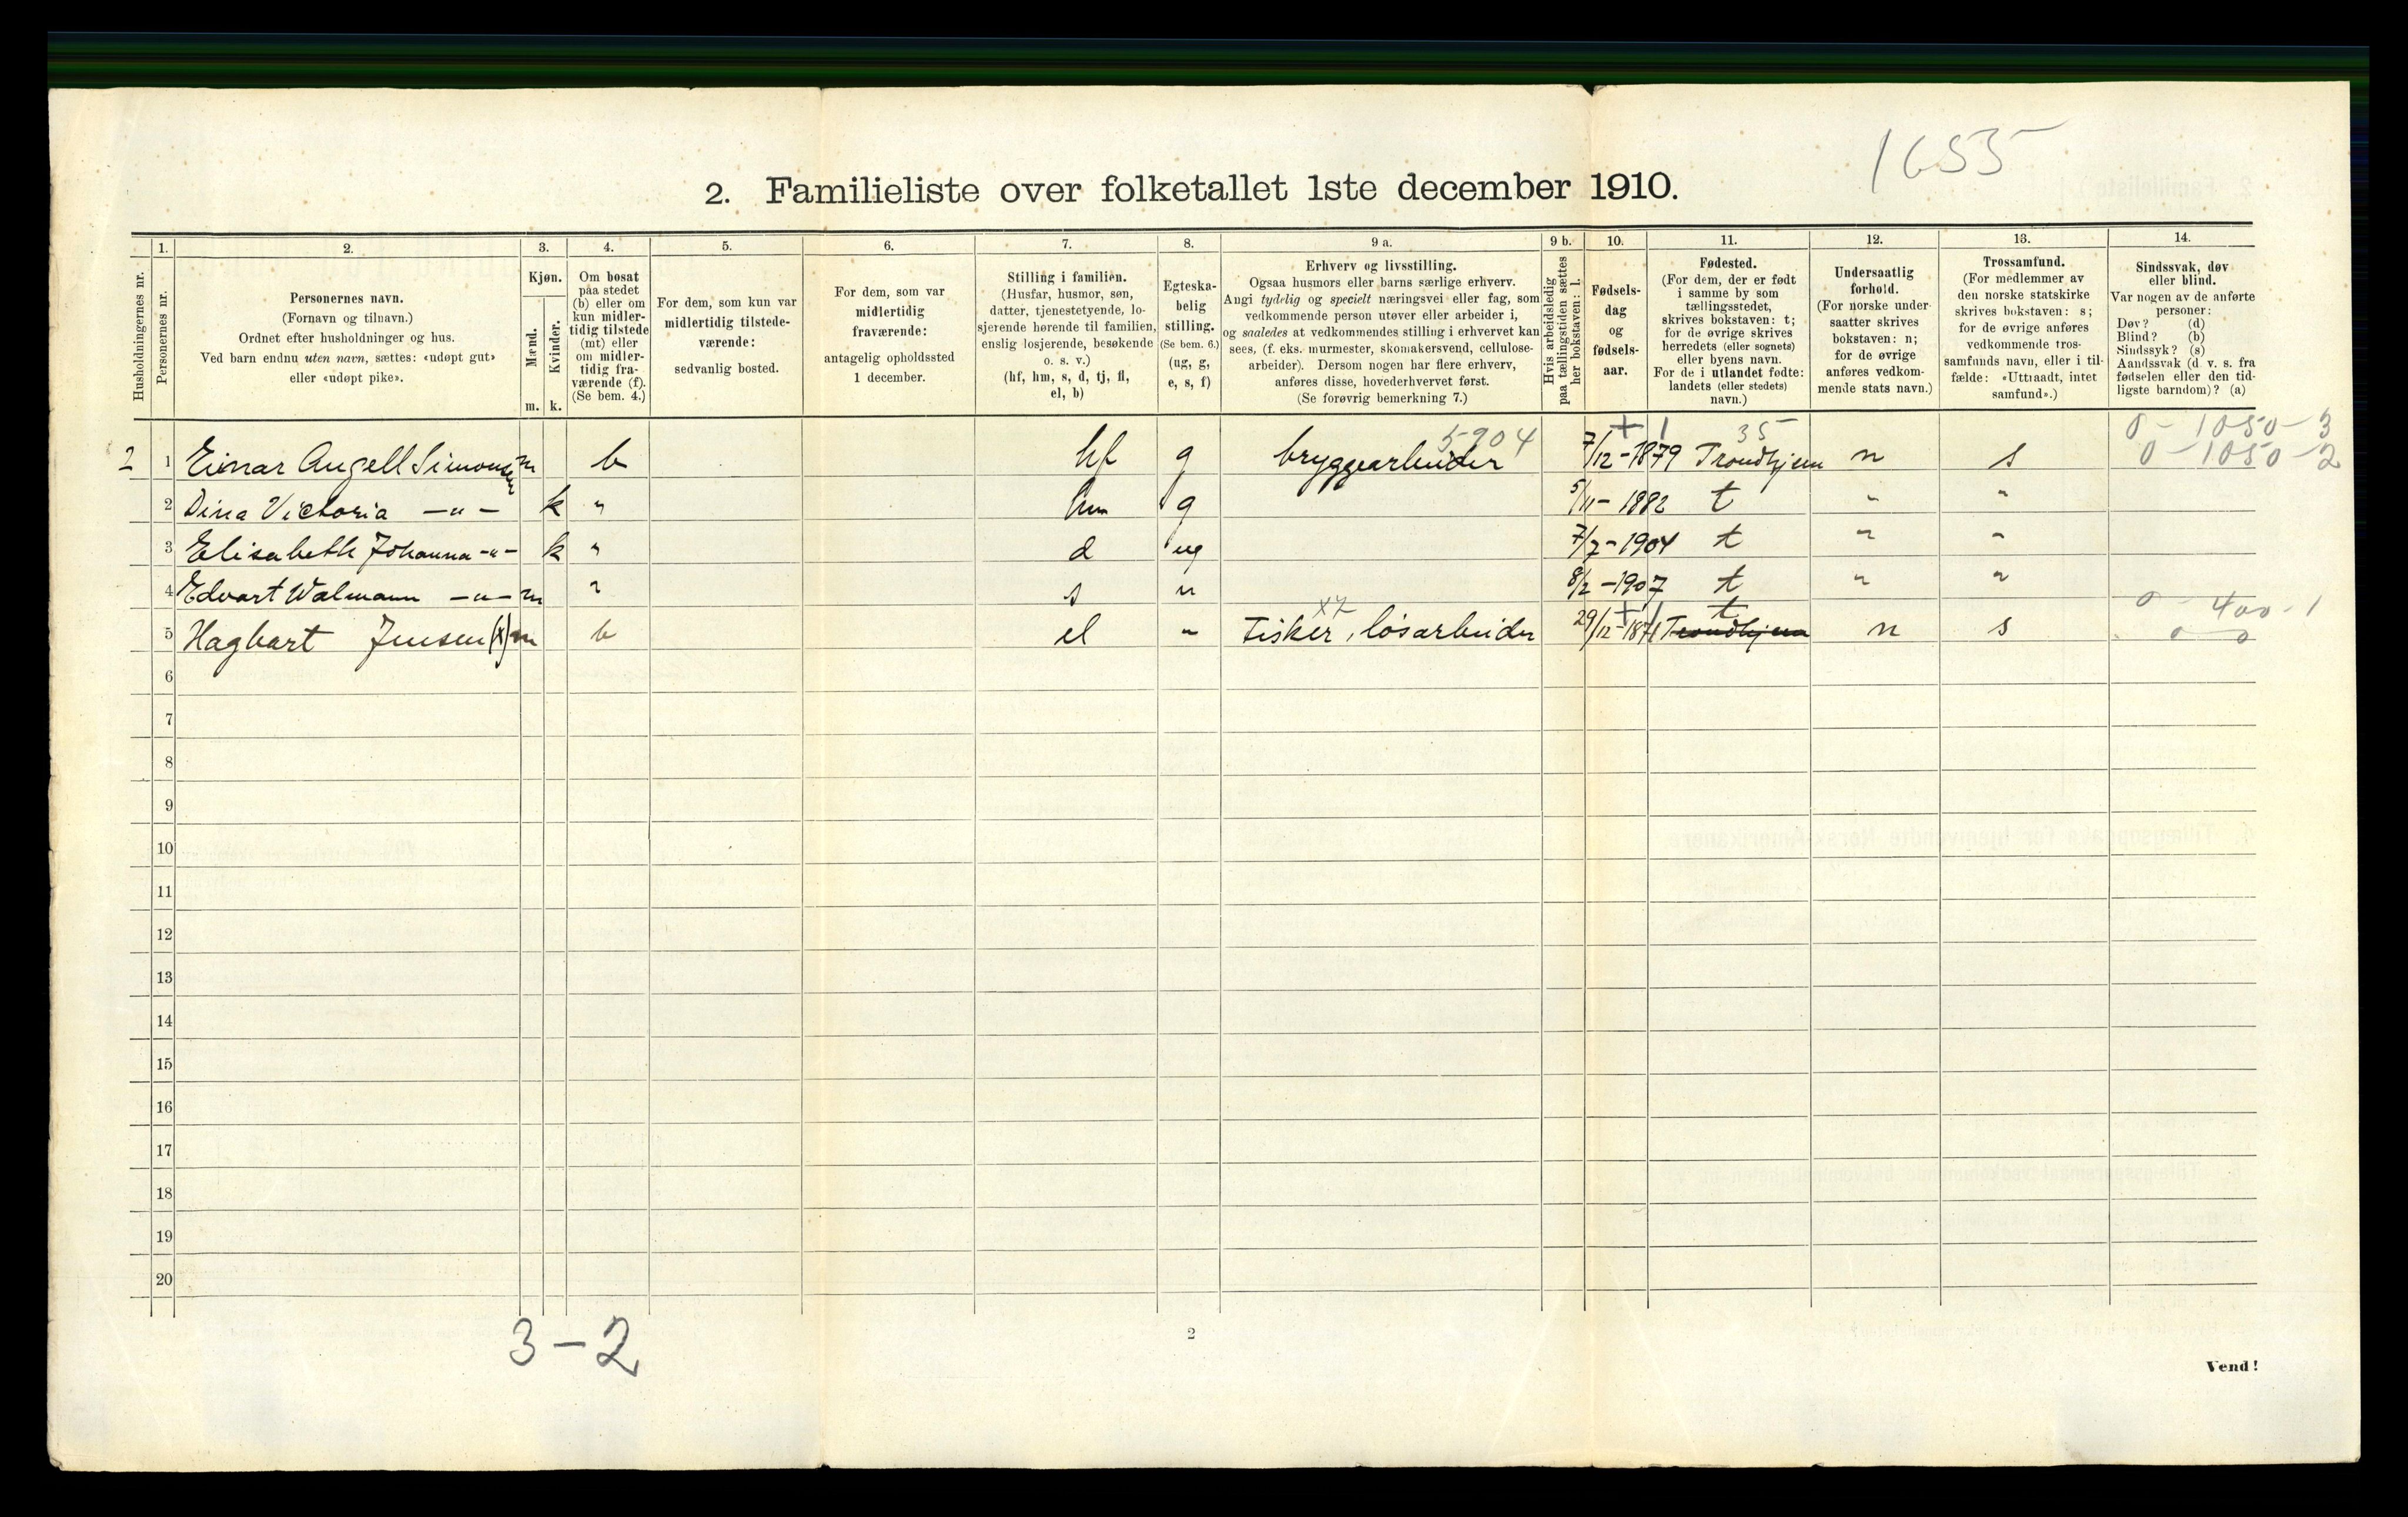 1655
2. Familieliste over folketallet 1ste december 1910.
Husholdningernes nr.
1.
Personernes nr.
2.
Personernes navn.
(Fornavn og tilnavn.)
Ordnet efter husholdninger og hus.
Ved barn endnu uten navn, sættes: «udøpt gut»
eller «udøpt pike».
3.
Kjøn.
Mænd.
Kvinder.
m. k.
4.
Om bosat
paa stedet
(b) eller om
kun midler-
tidig tilstede
(mt) eller
om midler-
tidig fra-
værende (f).
(Se bem. 4.)
5.
For dem, som kun var
midlertidig tilstede-
værende:
sedvanlig bosted.
6.
For dem, som var
midlertidig
fraværende:
antagelig opholdssted
1 december.
7.
Stilling i familien.
(Husfar, husmor, søn,
datter, tjenestetyende, lo-
sjerende hørende til familien,
enslig losjerende, besøkende
o. s. v.)
(hf, hm, s, d, tj, fl,
el, b)
8.
Egteska-
belig
stilling.
(Se bem. 6.)
(ug, g,
e, s, f)
9 a.
Erhverv og livsstilling.
Ogsaa husmors eller barns særlige erhverv.
Angi tydelig og specielt næringsvei eller fag, som
vedkommende person utøver eller arbeider i,
og saaledes at vedkommendes stilling i erhvervet kan
sees, (f. eks. murmester, skomakersvend, cellulose-
arbeider). Dersom nogen har flere erhverv,
anføres disse, hovederhvervet først.
(Se forøvrig bemerkning 7.)
9 b.
Hvis arbeidsledig
paa tællingstiden sættes
her bokstaven: l.
10.
Fødsels-
dag
og
fødsels-
aar.
11.
Fødested.
(For dem, der er født
i samme by som
tællingsstedet,
skrives bokstaven: t;
for de øvrige skrives
herredets (eller sognets)
eller byens navn.
For de i utlandet fødte:
landets (eller stedets)
navn.)
12.
Undersaatlig
forhold.
(For norske under-
saatter skrives
bokstaven: n;
for de øvrige
anføres vedkom-
mende stats navn.)
13.
Trossamfund.
(For medlemmer av
den norske statskirke
skrives bokstaven: s;
for de øvrige anføres
vedkommende tros-
samfunds navn, eller i til-
fælde: «Uttraadt, intet
samfund».)
14.
Sindssvak, døv
eller blind.
Var nogen av de anførte
personer:
Døv? (d)
Blind? (b)
Sindssyk? (s)
Aandssvak (d. v. s. fra
fødselen eller den tid-
ligste barndom)? (a)
5904 + 1 35 0 - 1050 - 3
2 1 Einar Angell Simonsen m b hf g bryggearbeider 7/12-1879 Trondhjem n s 0 - 1050 - 2
2 Dina Victoria -"- k " hm g 5/11-1882 t " "
3 Elisabeth Johanna -"- k " d ug 7/7-1904 t " "
4 Edvart Walmann -"- m " s " 8/2-1907 t " "
+ 1 t 0 400 - 1
5 Hagbart Jensen (x) m b el " Fisker, løsarbeider 29/12-1871 Trondhjem n s 0 0
6
7
8
9
10
11
12
13
14
15
16
17
18
19
20
3-2
2
Vend!